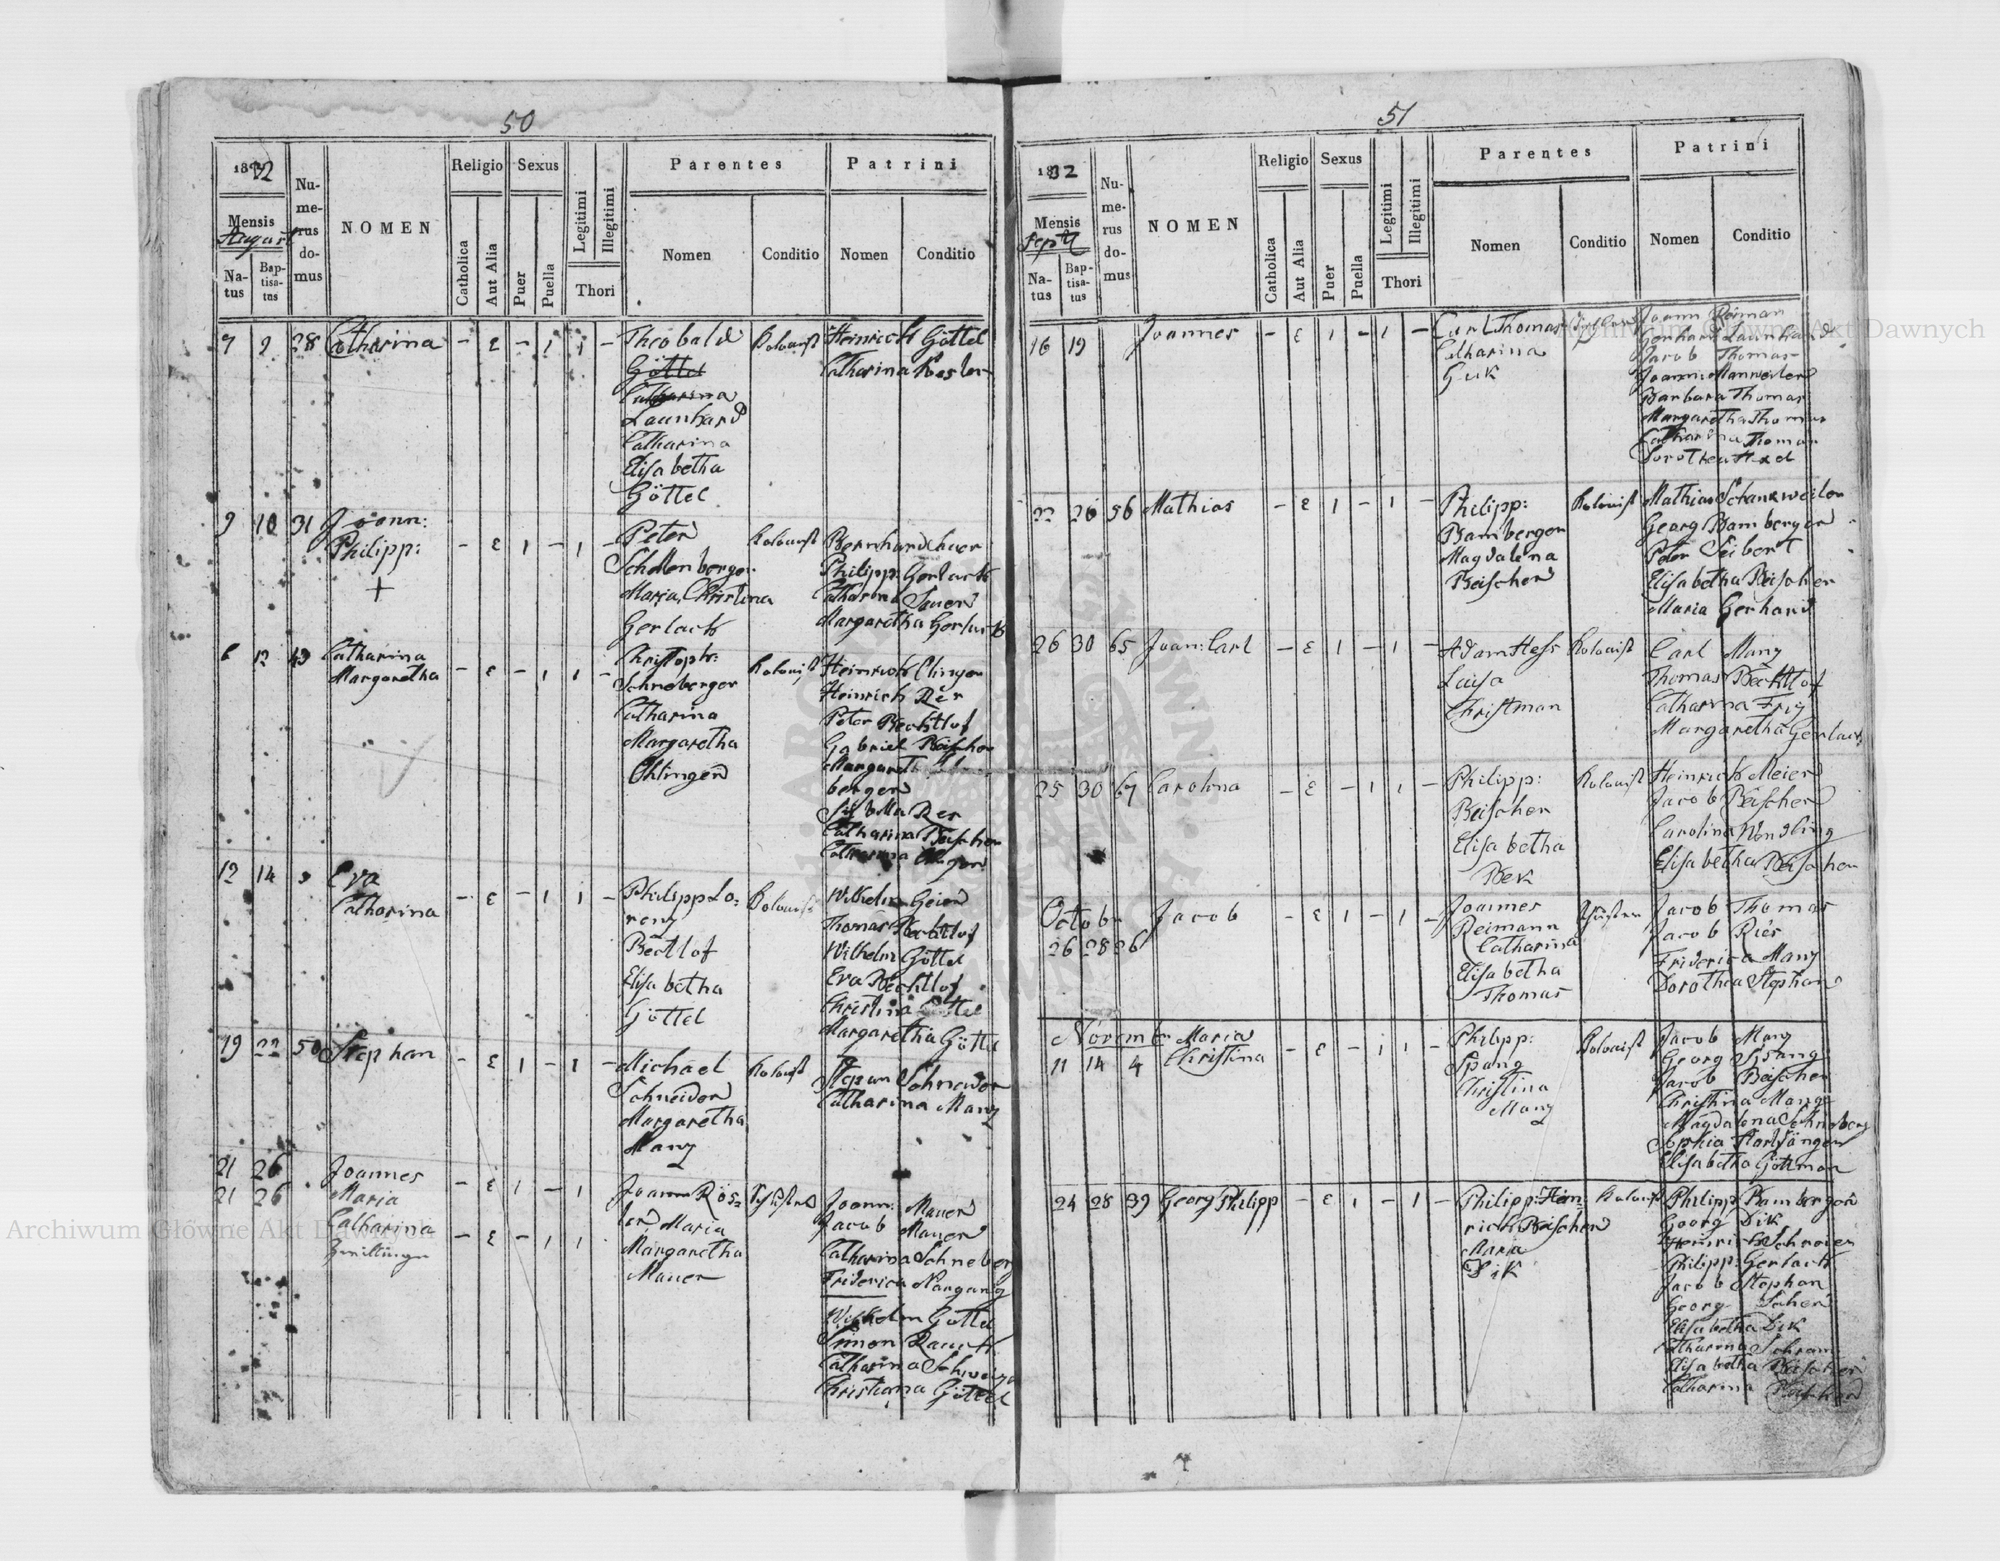 50
1832
Mensis
August
Natus
Baptisatus
Numerus domus
NOMEN
Religio
Catholica
Aut Alia
Sexus
Puer
Puella
Legitimi
Illegitimi
Thori
Parentes
Nomen
Conditio
Patrini
Nomen
Conditio
7 9 28 Catharina – ε – 1 1 –
Theobald
Göttel
Catharina
Launhard
Catharina
Elisabetha
Göttel
Kolonist
Heinrich Göttel
Catharina Kesler
9 10 31 Joann:
Philipp: – ε 1 – 1 –
+
Peter
Schellenberger
Maria, Christina
Gerlach
Kolonist
Philipp: Gerlach
Catharina Sauer
Margaretha Gerlach
6 12 43 Catharina
Margaretha – ε – 1 1 –
Christoph:
Schneberger
Catharina
Margaretha
Ohlinger
Kolonist
Heinrich Clinger
Heinrich Rer
Peter Bechtlof
Gabriel Beischer
berger
Catharina Beischer
12 14 Eva
Catharina – ε – 1 1 –
Philipp Lo:
renz
Bectlof
Elisabetha
Göttel
Kolonist
Wilhelm Geier
Thomas Bechtlof
Wilhelm Göttel
Eva Bechtlof
Christina Göttel
Margaretha Göttel
19 22 50 Stephan – ε 1 – 1 –
Michael
Schneider
Margaretha
Manz
Kolonist
Stepan Schneider
Catharina Manz
21 26 Joannes – ε 1 – 1
21 26 Maria
Catharina – ε – 1 1
Zwillinge
Joann Rös=
ler, Maria
Margaretha
Mauer
Joann: Mauer
Jacob Mauer
Catharina Schneberg
Friderica Nargang
Wilhelm Göttel
Simon Rauch
Catharina Schweizer
Christiana Göttel
51
1832
Mensis
Septbr
Natus
Baptisatus
Numerus domus
NOMEN
Religio
Catholica
Aut Alia
Sexus
Puer
Puella
Legitimi
Illegitimi
Thori
Parentes
Nomen
Conditio
Patrini
Nomen
Conditio
16 19 Joannes – ε 1 – 1 –
Carl Thomas
Catharina
Guk
Joann Reiman
Gerhard Launhard
Jacob Thomas
Joann: Manweiler
Barbara Thomas
Margaretha Thomas
Catharina Thomas
22 26 56 Mathias – ε 1 – 1 –
Philipp:
Bamberger
Magdalena
Beischer
Kolonist
Mathias Schankweiler
Georg Bamberger
Peter Seibert
Elisabetha Beischer
Maria Gerhard
26 30 65 Joan: Carl – ε 1 – 1 –
Adam Hess
Luisa
Christman
Kolonist
Carl Manz
Thomas Bechtlof
Catharina Friz
Margaretha Gerlach
25 30 67 Carolina – ε – 1 1 –
Philipp:
Beischer
Elisabetha
Bek
Kolonist
Heinrich Meier
Jacob Beischer
Carolina Wendling
Elisabetha Beischer
Octobr
26 28 26 Jacob – ε 1 – 1 –
Joannes
Reimann
Catharina
Elisabetha
Thomas
Jacob Thomas
Jacob Ries
Friderica Manz
Dorothea Stephan
Novembr
11 14 4 Maria
Christina – ε – 1 1 –
Philipp:
Spang
Christina
Manz
Kolonist
Jacob Manz
Georg Spang
Jacob Beischer
Christina Mang
Magdalena Schneberg
Sophia Harfänger
Elisabetha Götzman
24 28 39 Georg Philipp – ε 1 – 1 –
Philipp: Hein:
rich Beischer
Maria
Dik
Kolonist
Philipp: Bamberger
Georg Dik
Heinrich Schroier
Philipp: Gerlach
Jacob Stephan
Georg Scher
Elisabetha Dik
Catharina Schram
Elisabetha Beischer
Catharina
Archiwum Główne Akt Dawnych
Archiwum Główne Akt Dawnych